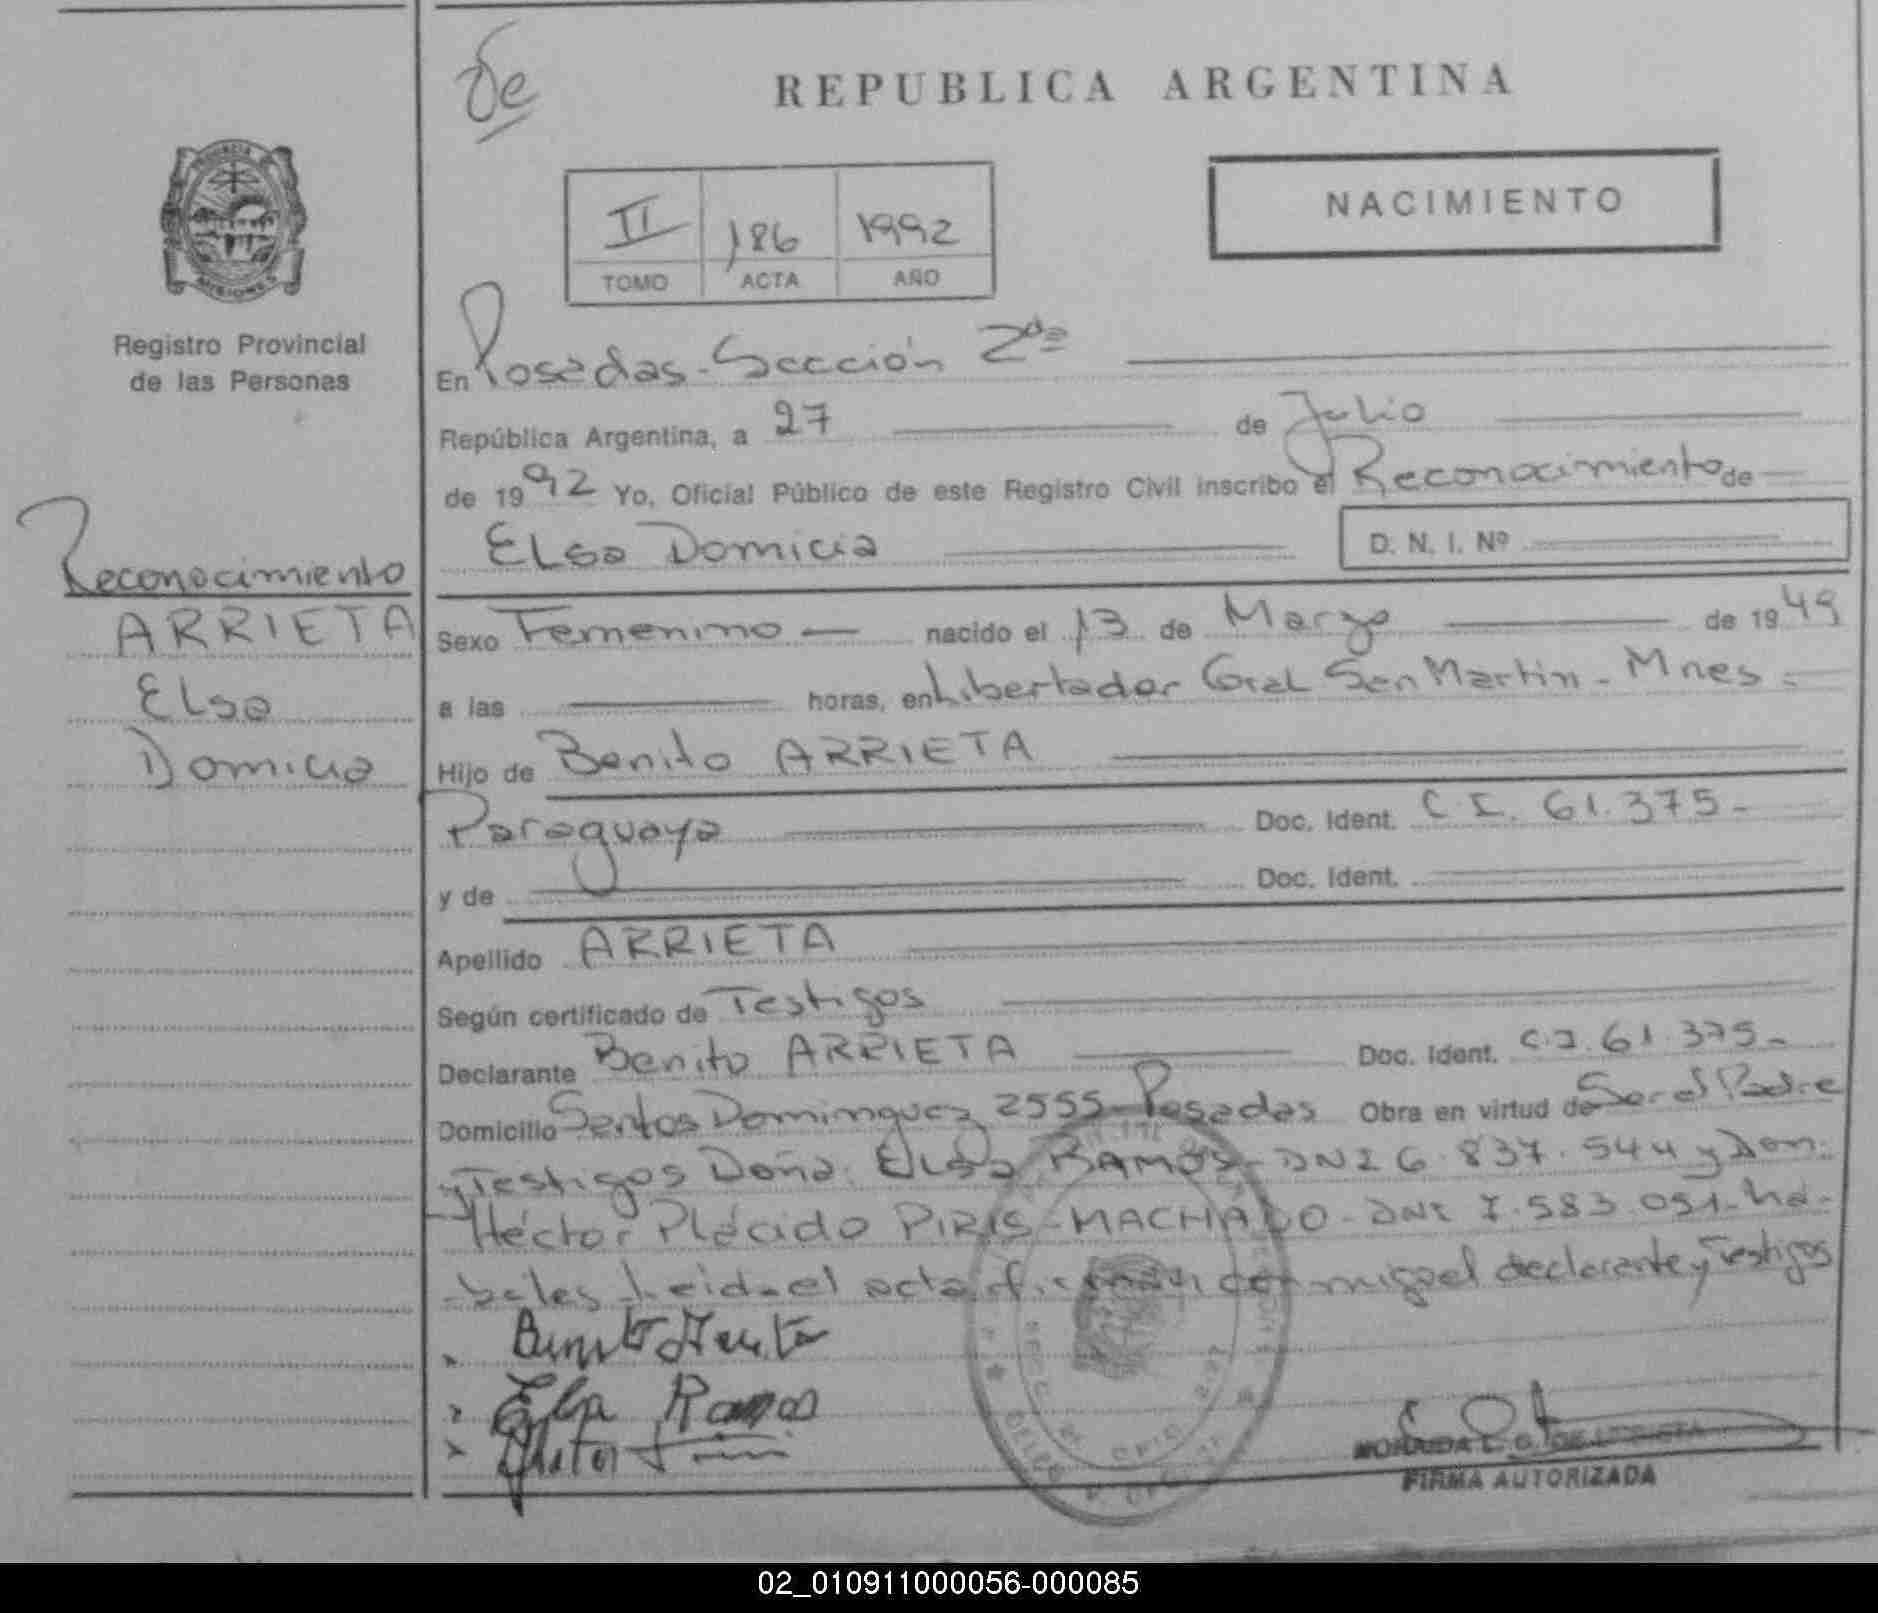 de
REPUBLICA ARGENTINA
NACIMIENTO
II 186 1992
TOMO ACTA AÑO
PROVINCIA
MISIONES
Registro Provincial
de las Personas
Reconocimiento
ARRIETA
Elsa
Domicia
En Posadas - Sección 2da
República Argentina, a 27 de Julio
de 1992 Yo, Oficial Público de este Registro Civil inscribo el Reconocimiento de
Elsa Domicia D. N. I. Nº
Sexo Femenino — nacido el 13 de Marzo de 1949
a las horas, en Libertador Gral San Martin - Mnes -
Hijo de Benito ARRIETA
Paraguaya Doc. Ident. C I. 61.375 -
y de Doc. Ident.
Apellido ARRIETA
Según certificado de Testigos
Declarante Benito ARRIETA Doc. Ident. C.I. 61.375 -
Domicilio Santos Dominguez 2555 - Posadas Obra en virtud de Ser el Padre
y Testigos Doña: Elsa RAMOS - DNI 6.837.544 y Don:
Héctor Plácido PIRIS - MACHADO - DNI 7.583.051 - há-
biles Leida el acta firman conmigo el declarante y Testigos
Benito Arrieta
Elsa Ramos
FIRMA AUTORIZADA
02_010911000056-000085